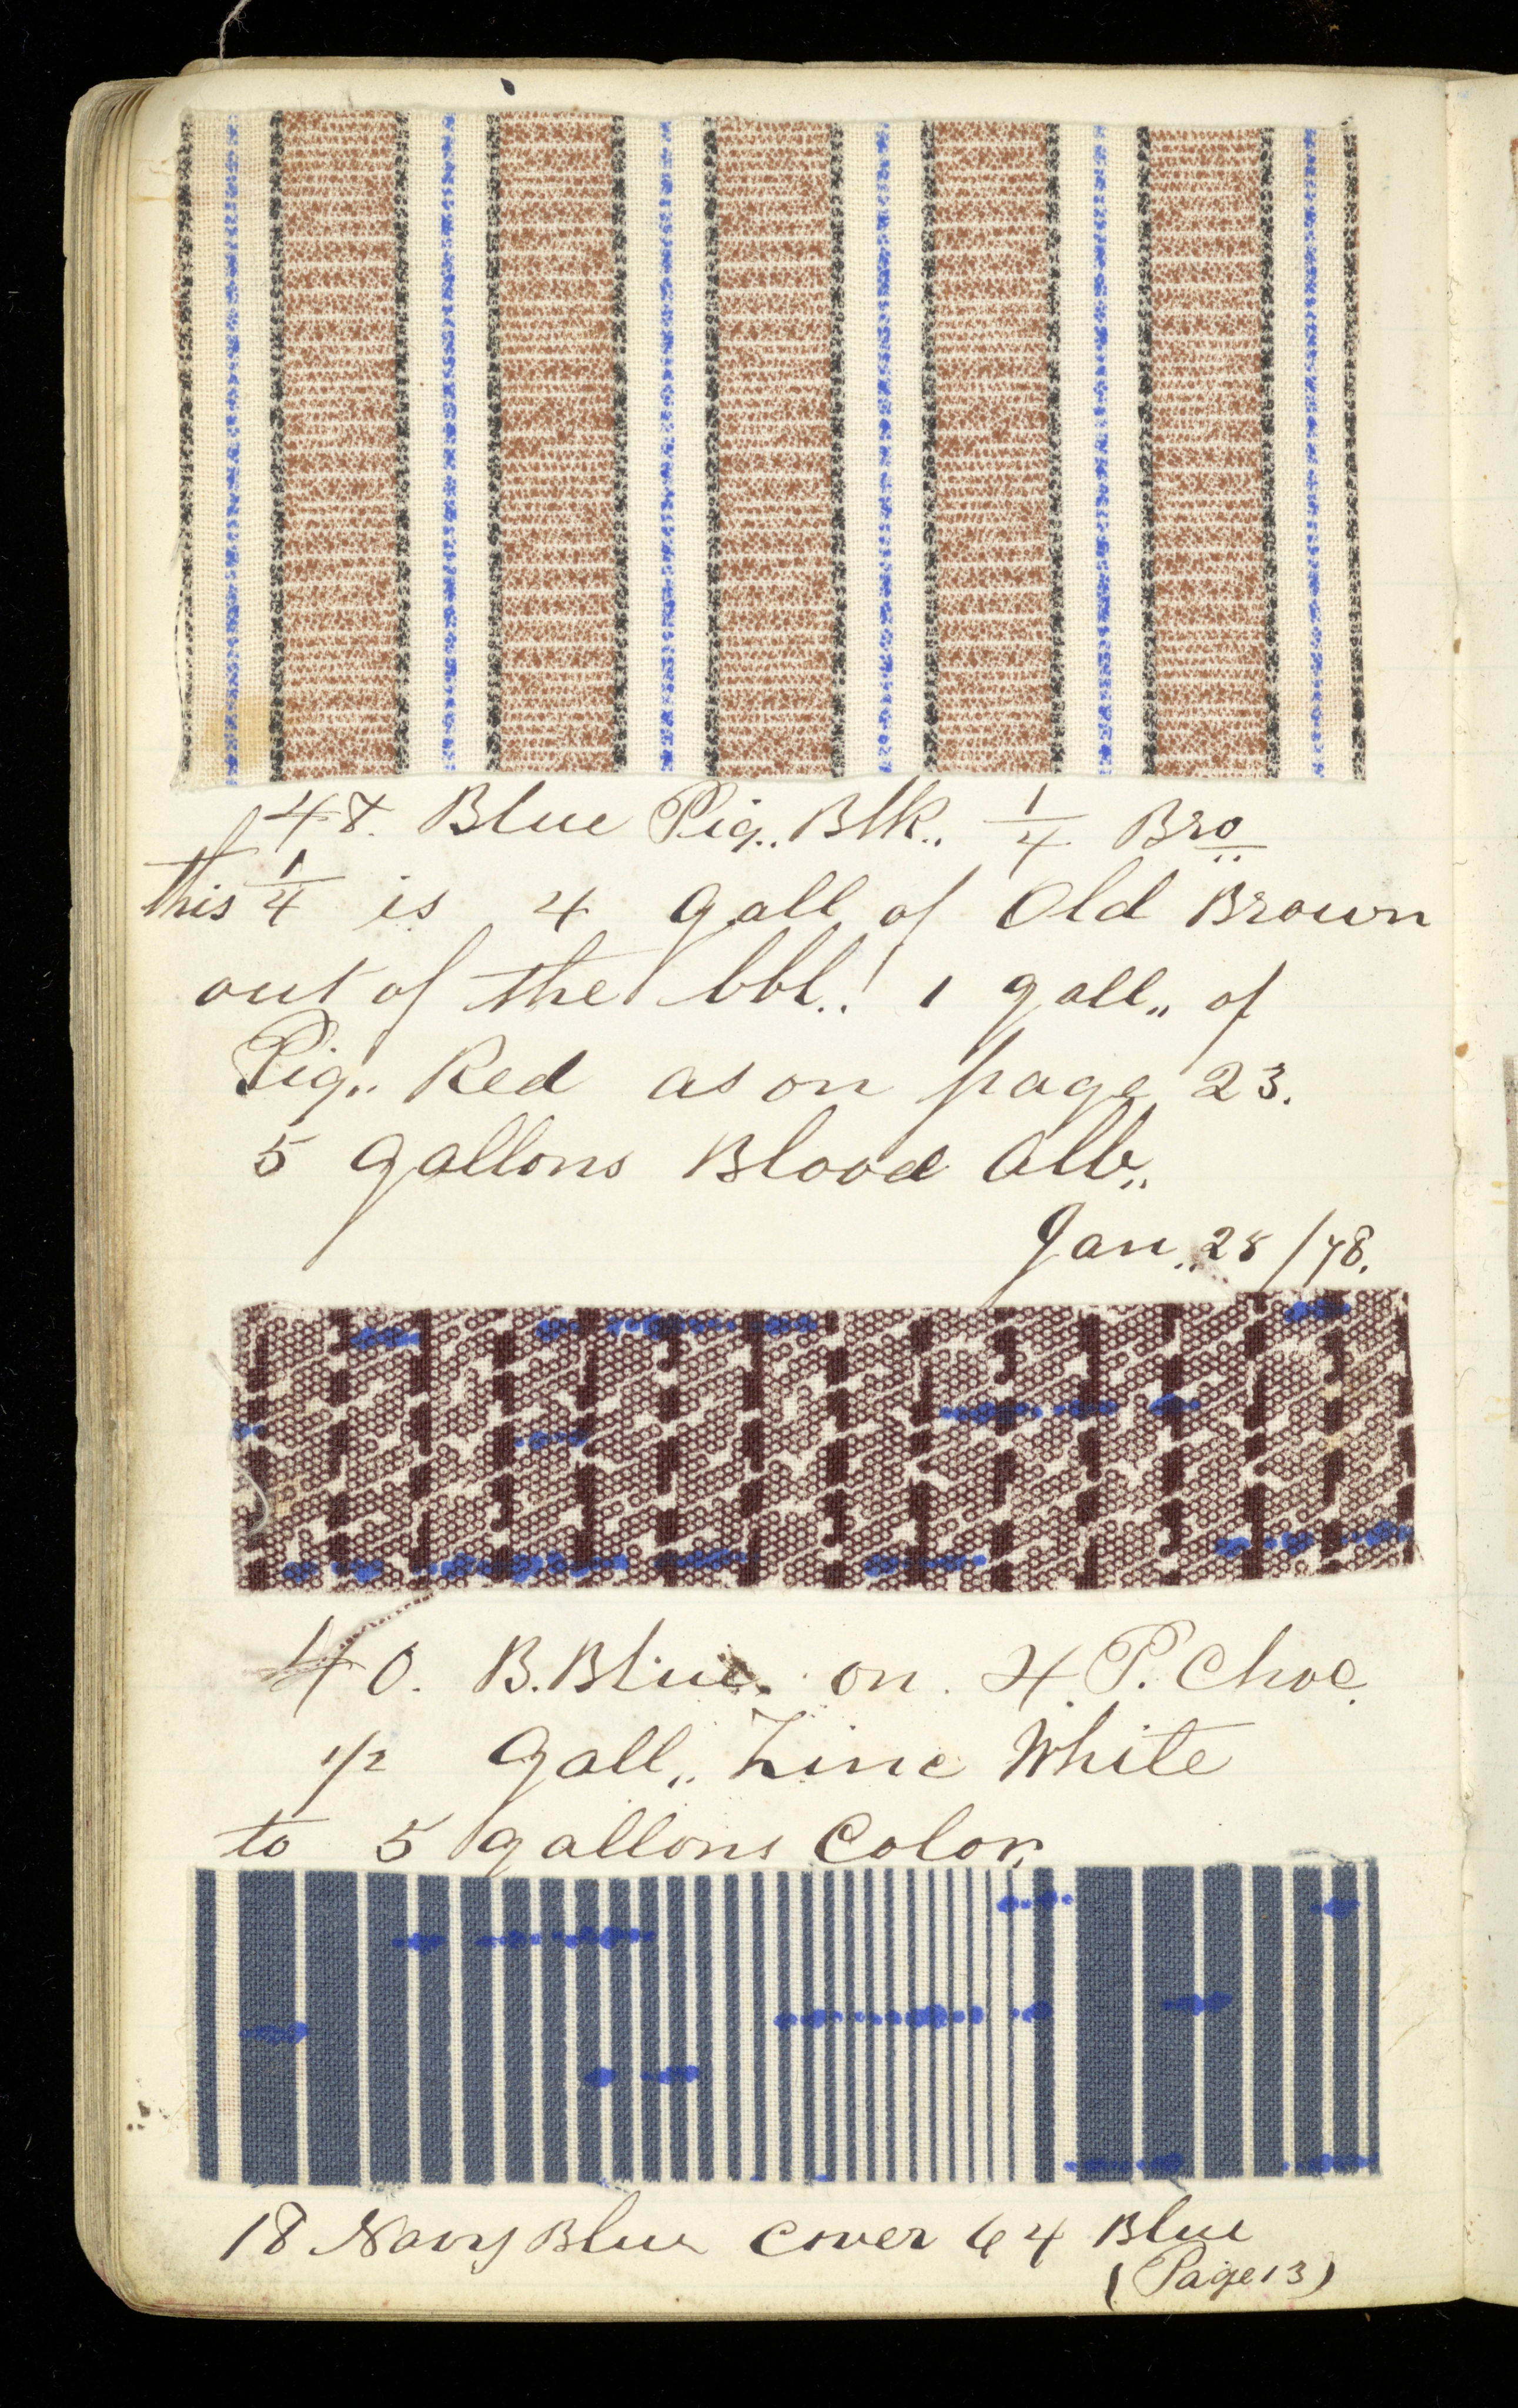 48. Blue Pig.. Blk.. 1/4 Bro
this 1/4 is 4 gall of Old Brown
out of the bbl..! 1 gall,, of
Pig.. Red as on page 23.
5 gallons Blood Alb,,
Jan,, 28/78.
40. B.Blue. on. 4.P. Choc.
1/2 Gall,, Zinc White
to 5 gallons Color,
18 Navy Blue cover 64 Blue
(Page 13)